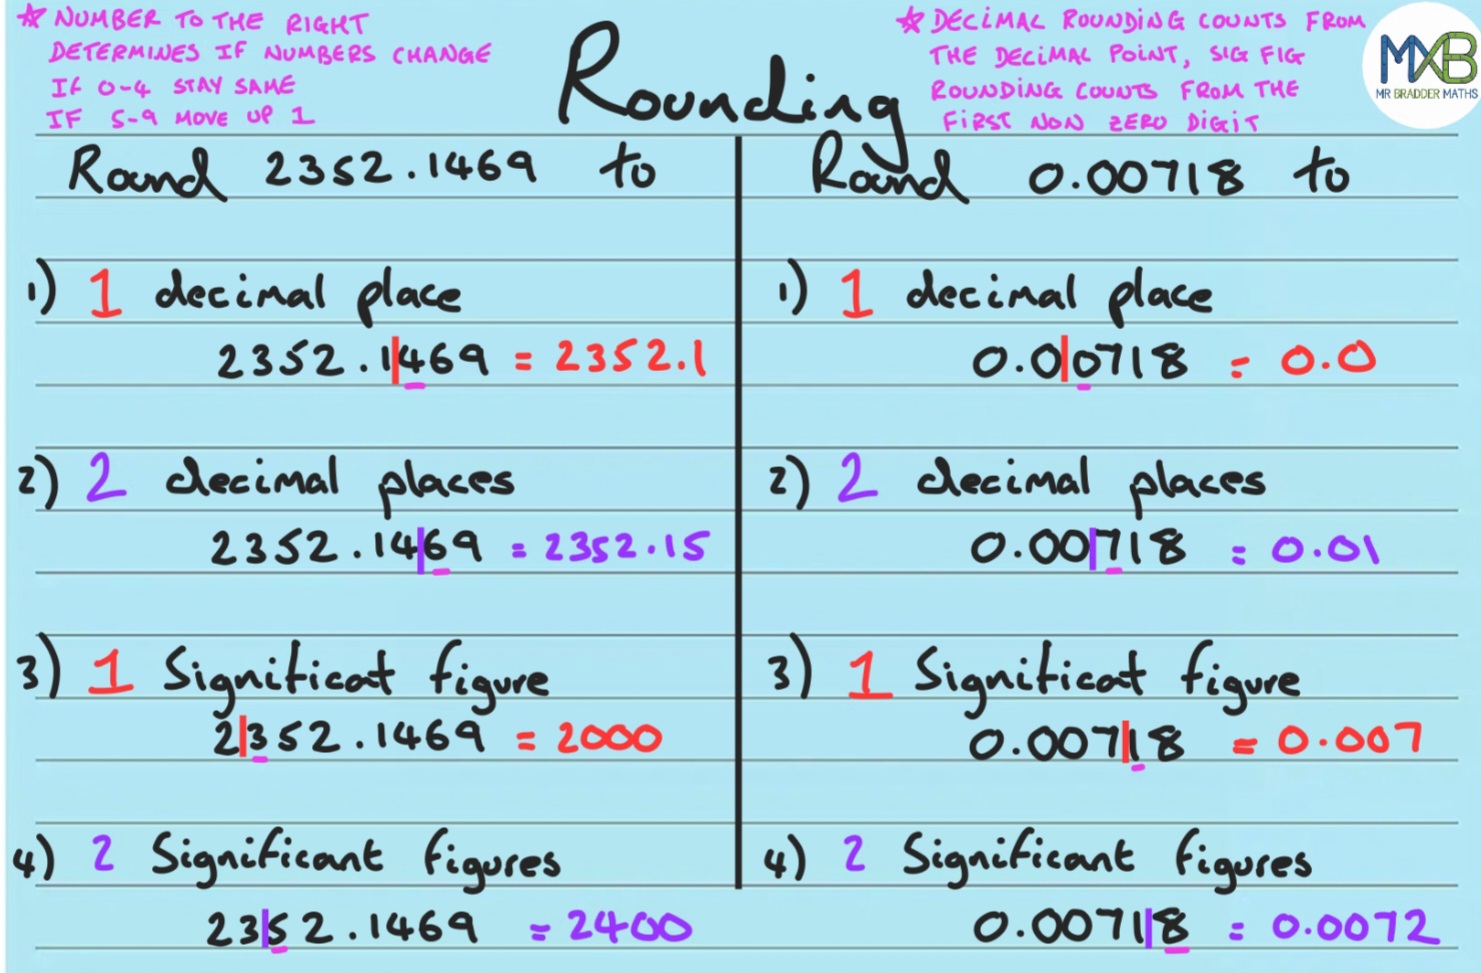 ☆ NUMBER TO THE RIGHT
DETERMINES IF NUMBERS CHANGE
IF 0-4 STAY SAME
IF 5-9 MOVE UP 1
Rounding
☆ DECIMAL ROUNDING COUNTS FROM
THE DECIMAL POINT, SIG FIG
ROUNDING COUNTS FROM THE
FIRST NON ZERO DIGIT
MXB
MR BRADDER MATHS
Round 2352.1469 to
1) 1 decimal place
2352.1|469 = 2352.1
2) 2 decimal places
2352.14|69 = 2352.15
3) 1 Significat figure
2|352.1469 = 2000
4) 2 Significant figures
23|52.1469 = 2400
Round 0.00718 to
1) 1 decimal place
0.0|0718 = 0.0
2) 2 decimal places
0.00|718 = 0.01
3) 1 Significat figure
0.007|18 = 0.007
4) 2 Significant figures
0.0071|8 = 0.0072